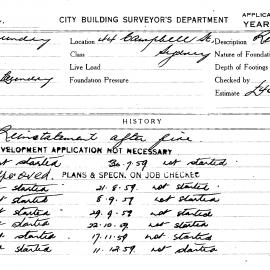 CITY BUILDING SURVEYOR'S DEPARTMENT
APPLICA
YEAR
Location 44 Campbell St. Description
Class Sydney Nature of Foundation
Live Load Depth of Footings
Foundation Pressure Checked by
Estimate
HISTORY
Reinstatement after fire
DEVELOPMENT APPLICATION NOT NECESSARY
not started 30.7.59 not started
PLANS & SPECN. ON JOB CHECKED
started 21.8.59 not started
started 8.9.59 not started
started 29.9.59 not started
started 22.10.59 not started
started 17.11.59 not started
started 11.12.59 not started